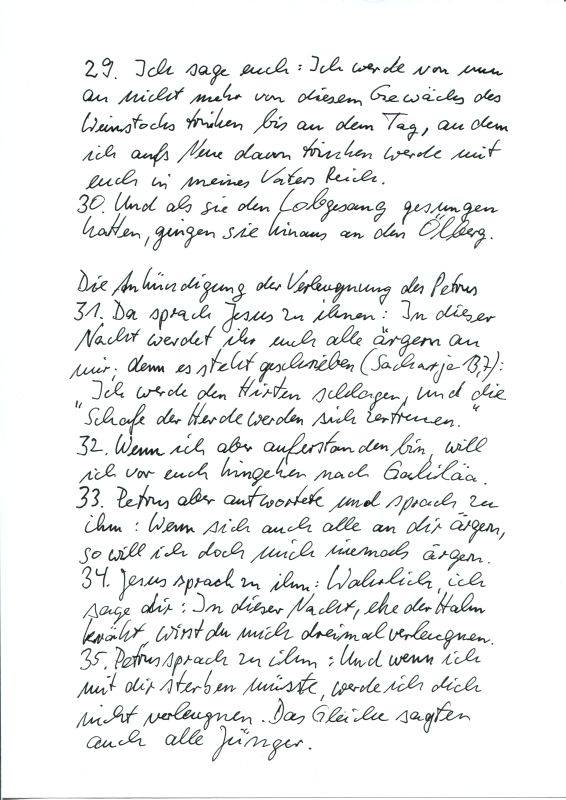 29. Ich sage euch: Ich werde von nun
an nicht mehr von diesem Gewächs des
Weinstocks trinken bis an dem Tag, an dem
ich aufs Neue davon trinken werde mit
euch in meines Vaters Reich.
30. Und als sie den Lobgesang gesungen
hatten, gingen sie hinaus an den Ölberg.
Die Ankündigung der Verleugnung des Petrus
31. Da sprach Jesus zu ihnen: In dieser
Nacht werdet ihr euch alle ärgern an
mir; denn es steht geschrieben (Sacharja 13,7):
"Ich werde den Hirten schlagen, und die
Schafe der Herde werden sich zerstreuen."
32. Wenn ich aber auferstanden bin, will
ich vor euch hingehen nach Galiläa.
33. Petrus aber antwortete und sprach zu
ihm: Wenn sich auch alle an dir ärgern,
so will ich doch mich niemals ärgern.
34. Jesus sprach zu ihm: Wahrlich, ich
sage dir: In dieser Nacht, ehe der Hahn
kräht, wirst du mich dreimal verleugnen.
35. Petrus sprach zu ihm: Und wenn ich
mit dir sterben müsste, werde ich dich
nicht verleugnen. Das Gleiche sagten
auch alle Jünger.